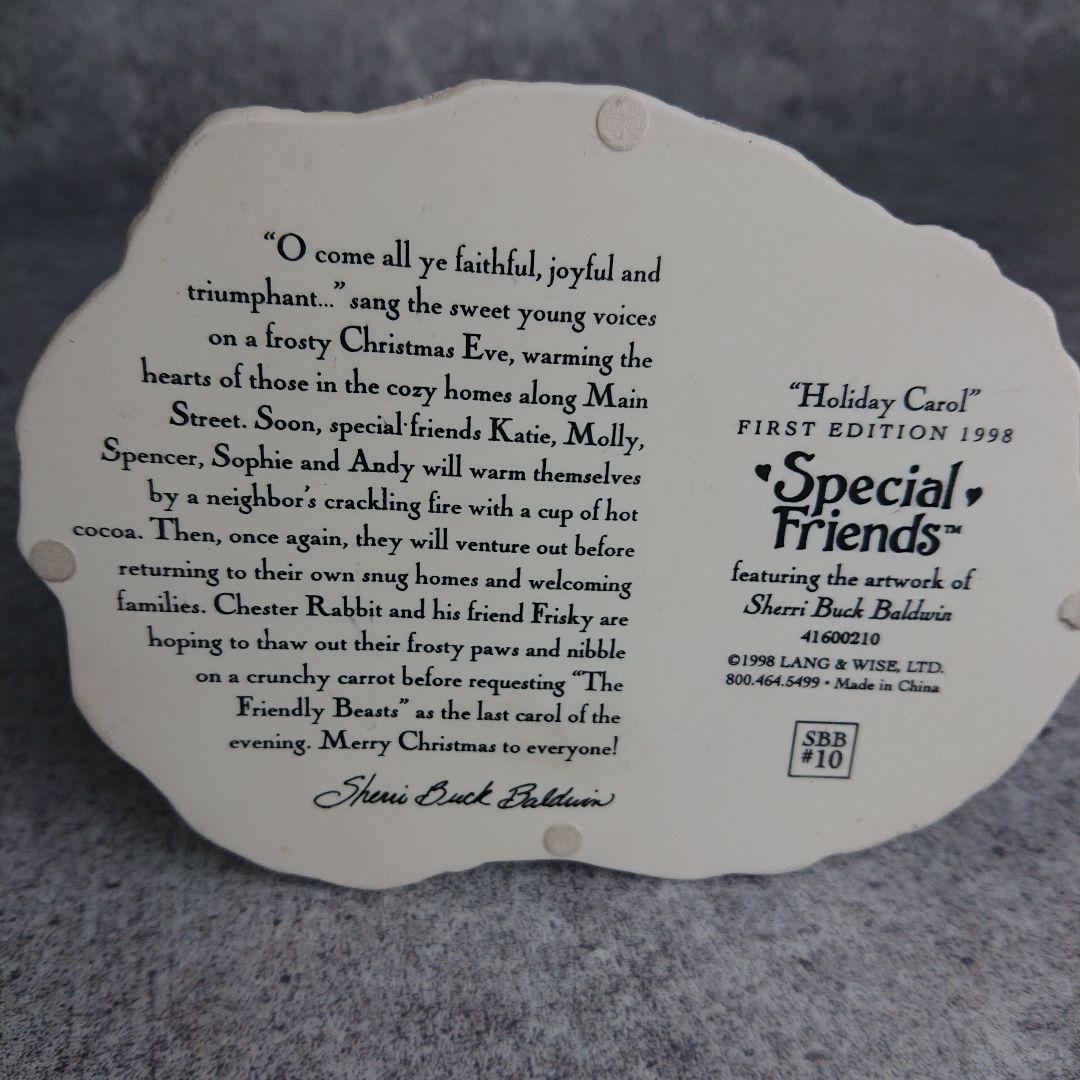 “O come all ye faithful, joyful and
triumphant...” sang the sweet young voices
on a frosty Christmas Eve, warming the
hearts of those in the cozy homes along Main
Street. Soon, special friends Katie, Molly,
Spencer, Sophie and Andy will warm themselves
by a neighbor's crackling fire with a cup of hot
cocoa. Then, once again, they will venture out before
returning to their own snug homes and welcoming
families. Chester Rabbit and his friend Frisky are
hoping to thaw out their frosty paws and nibble
on a crunchy carrot before requesting “The
Friendly Beasts” as the last carol of the
evening. Merry Christmas to everyone!
Sherri Buck Baldwin
“Holiday Carol”
FIRST EDITION 1998
Special
Friends™
featuring the artwork of
Sherri Buck Baldwin
41600210
©1998 LANG & WISE, LTD.
800.464.5499 • Made in China
SBB
#10